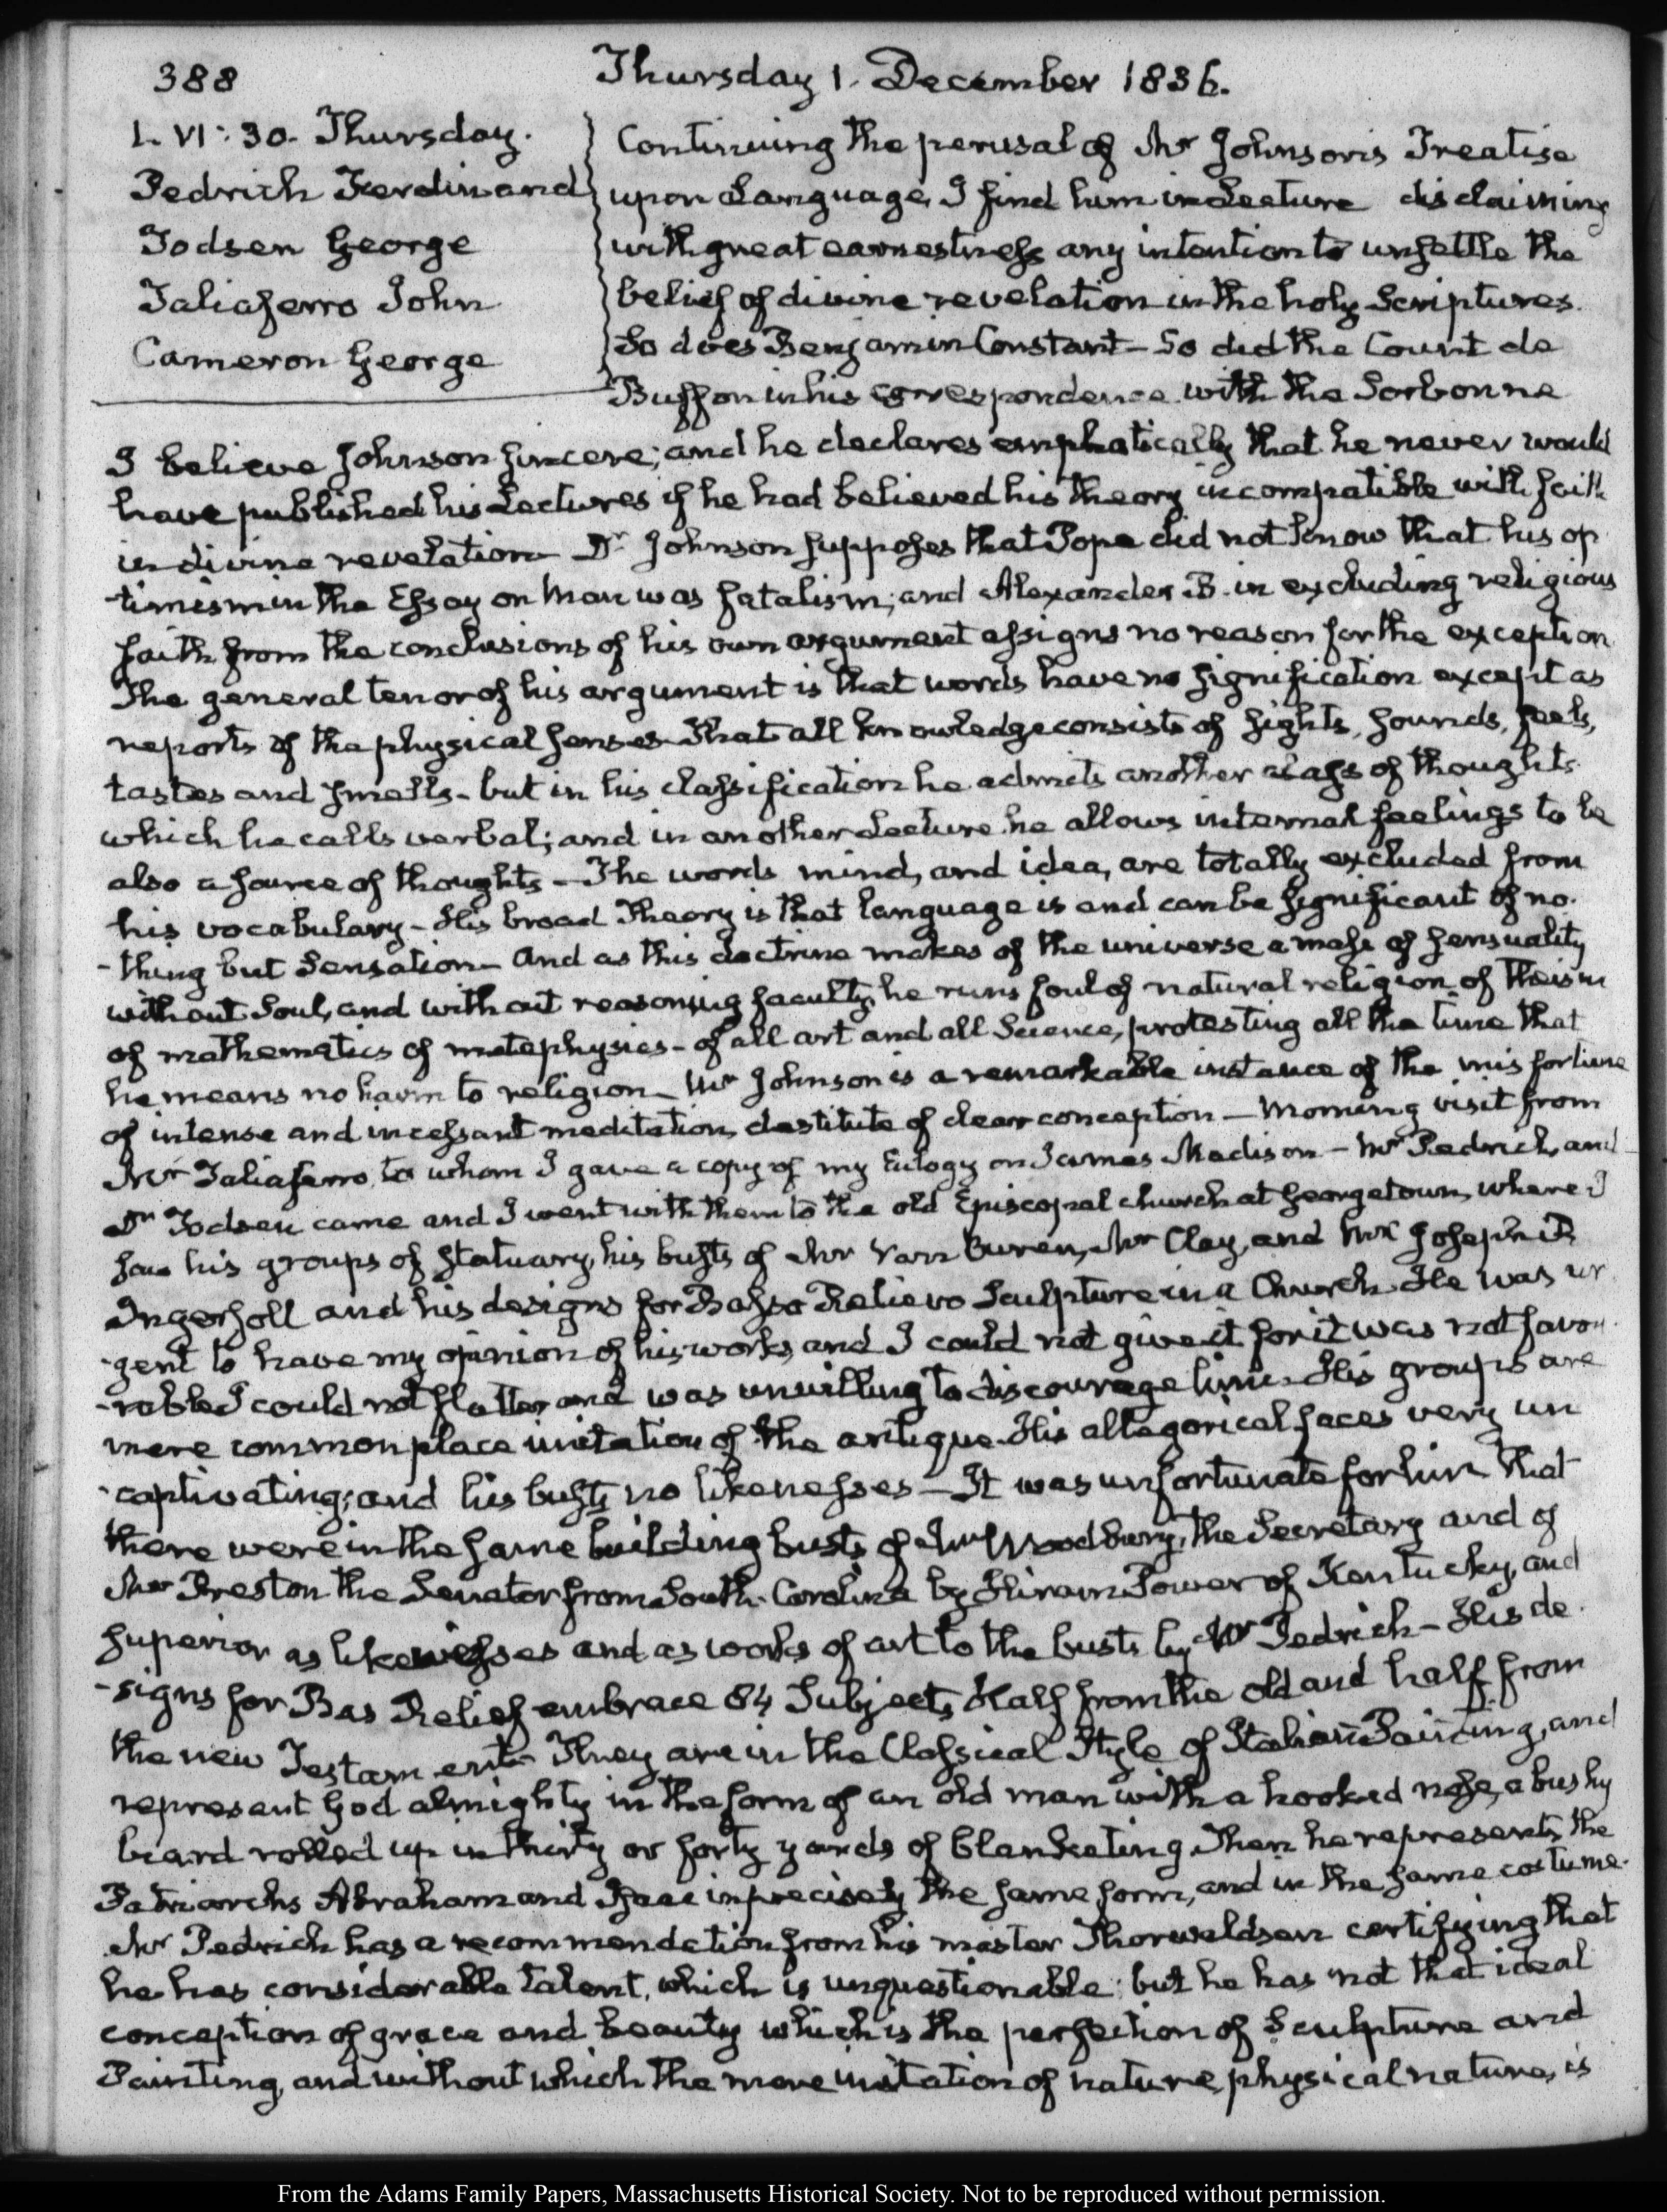 388
Thursday 1. December 1836.
1. VI: 30. Thursday.
Pedrich Ferdinand
Todsen George
Taliaferro John
Cameron George
Continuing the perusal of Mr Johnson's Treatise
upon Language, I find him in Lecture disclaiming
with great earnestness any intention to unsettle the
belief of divine revelation in the holy Scriptures.
So does Benjamin Constant — So did the Count de
Buffon in his correspondence with the Sorbonne
I believe Johnson sincere; and he declares emphatically that he never would
have published his Lectures if he had believed his theory incompatible with faith
in divine revelation — Dr Johnson supposes that Pope did not know that his op
-timism in the Essay on Man was fatalism; and Alexander B. in excluding religious
faith from the conclusions of his own argument assigns no reason for the exception
The general tenor of his argument is that words have no signification except as
reports of the physical senses — That all knowledge consists of sights, sounds, feels,
tastes and smells — but in his classification he admits another class of thoughts
which he calls verbal; and in another Lecture he allows internal feelings to be
also a source of thoughts — The words mind, and idea, are totally excluded from
his vocabulary — His broad Theory is that language is and can be significant of no-
-thing but Sensation — And as this doctrine makes of the universe a mass of sensuality
without Soul, and without reasoning faculty, he runs foul of natural religion of Theism
of mathematics of metaphysics — of all art and all Science, protesting all the time that
he means no harm to religion — Mr Johnson is a remarkable instance of the misfortune
of intense and incessant meditation, destitute of clear conception — Morning visit from
Mr Taliaferro, to whom I gave a copy of my Eulogy on James Madison — Mr Pedrich, and
Dr Todsen came and I went with them to the old Episcopal church at Georgetown, where I
saw his groups of Statuary, his busts of Mr Van Buren, Mr Clay, and Mr Joseph R.
Ingersoll and his designs for Basso Relievo Sculpture in a Church. He was ur
-gent to have my opinion of his works, and I could not give it for it was not favou-
-rable. I could not flatter and was unwilling to discourage him. His groups are
mere common place imitation of the antique. His allegorical faces very un
-captivating; and his busts no likenesses — It was unfortunate for him that
there were in the same building busts of Mr Woodbury, the Secretary and of
Mr Preston the Senator from South-Carolina by Hiram Power of Kentucky, and
superior as likenesses and as works of art to the busts by Mr Pedrich — His de-
-signs for Bas Relief embrace 84 Subjects, Half from the old and half from
the new Testament — They are in the Classical Style of Italian Painting, and
represent God almighty in the form of an old man with a hooked nose, a bushy
beard rolled up in thirty or forty yards of blanketing. Then he represents the
Patriarchs Abraham and Isaac in precisely the same form, and in the same costume.
Mr Pedrich has a recommendation from his master Thorwaldsen certifying that
he has considerable talent, which is unquestionable: but he has not that ideal
conception of grace and beauty which is the perfection of Sculpture and
Painting, and without which the mere imitation of nature, physical nature, is
From the Adams Family Papers, Massachusetts Historical Society. Not to be reproduced without permission.